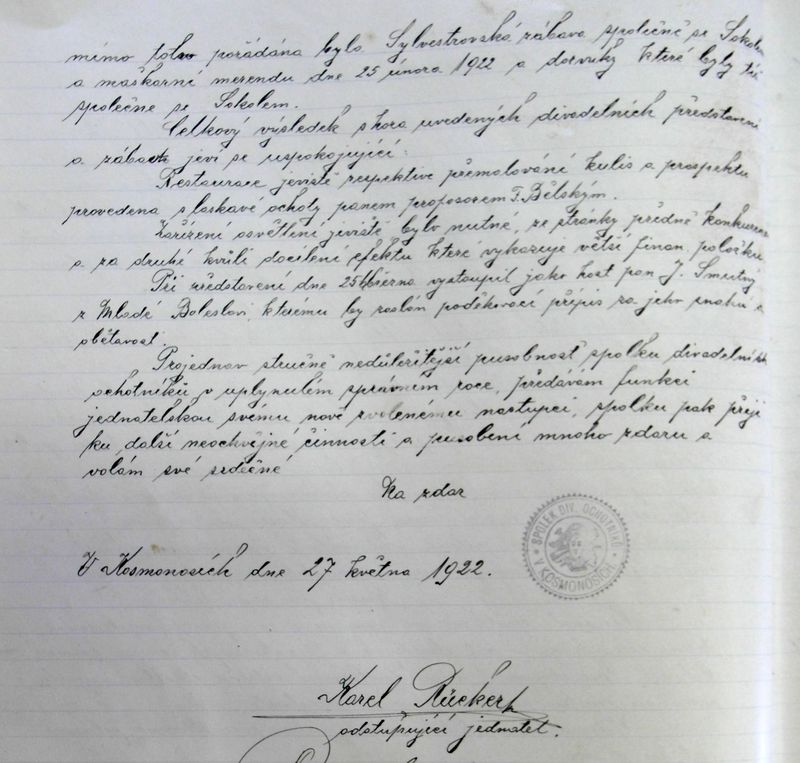 mimo toho pořádána byla Sylvestrovská zábava společně se Sokolem
a maškarní merendu dne 25 února 1922 a dozvuky které byly též
společne se Sokolem.
Celkový výsledek shora uvedených divadelních představení
a zábav jeví se uspokojující.
Restaurace jeviště respektive přemalování kulis a prospektu
provedena s laskavé ochoty panem proposorem F. Bělským.
Zařízení osvětlení jeviště bylo nutné, ze stránky předně konkurence
a za druhé kvůli docílení efektu které vykazuje větší finan. položku
Při představení dne 25 března vystoupil jako host pan J. Smutný
z Mladé Boleslavi, kterému by zaslán poděkovací přípis za jeho snahu a
obětavost.
Projednav stručně nedůležitější pusobnost spolku divadelních
ochotníků v uplynulém správním roce, předávám funkci
jednatelskou svemu nově zvolenému nastupci, spolku pak přeji
ku další neochvějne činnosti a pusobení mnoho zdaru a
volám své srdečné
Na zdar
V Kosmonosích dne 27 května 1922.
SPOLEK DIV. OCHOTNÍKŮ
V KOSMONOSÍCH
Karel Rückert
odstupující jednatel.